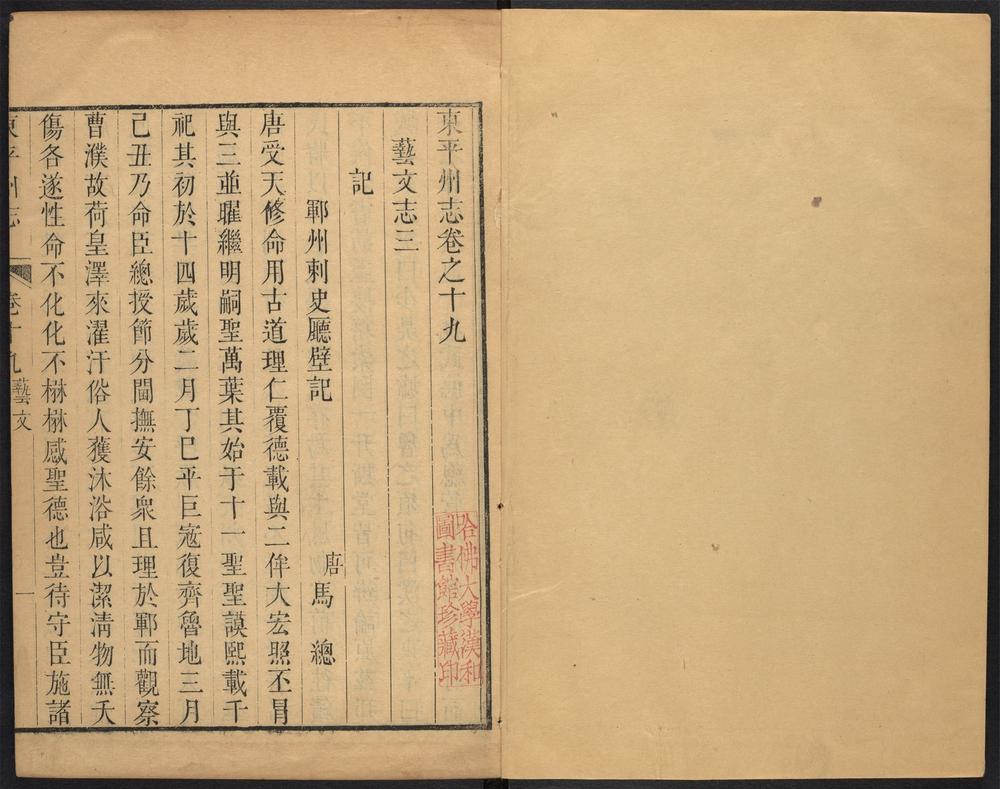 東平州志卷之十九
藝文志三
記
鄆州刺史廳壁記
唐馬總
唐受天修命用古道理仁覆德載與二侔大宏照丕冒
與三並曜繼明嗣聖萬葉其始于十一聖聖謨熙載千
祀其初於十四歲歲二月丁巳平巨寇復齊魯地三月
己丑乃命臣總授節分閫撫安餘衆且理於鄆而觀察
曹濮故荷皇澤來濯汙俗人獲沐浴咸以潔清物無夭
傷各遂性命不化化不楙楙感聖德也豈待守臣施諸
東平州志
卷十九
藝文
一
哈佛大學漢和
圖書館珍藏印